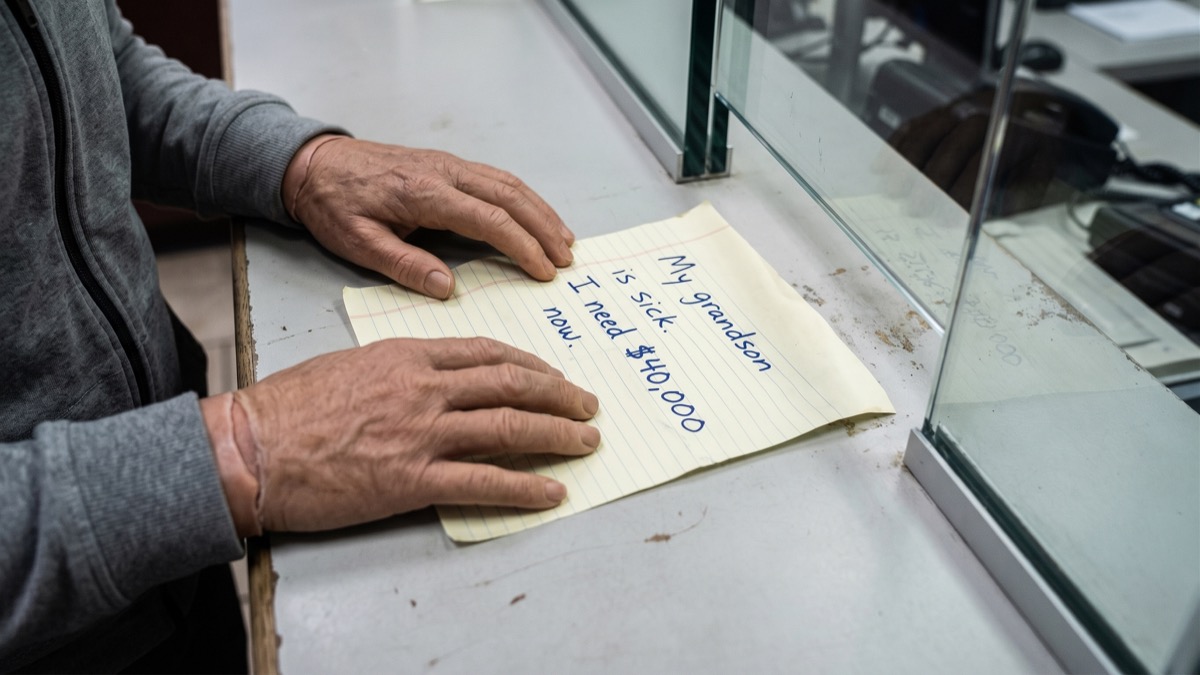 My grandson
is sick.
I need $40,000
now.